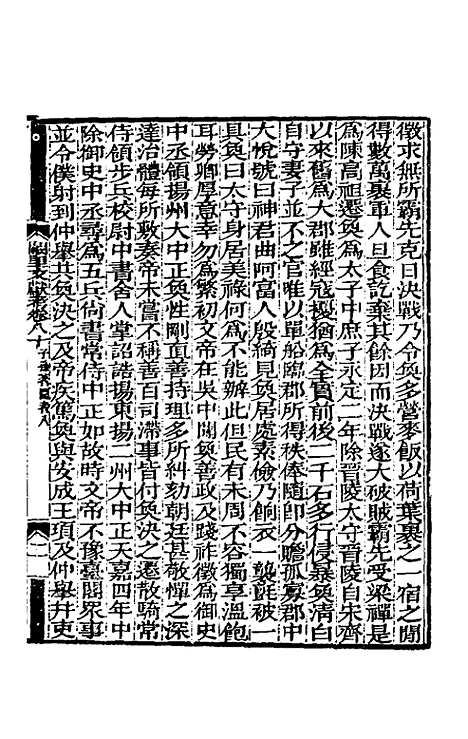 徵求無所霸先克日決戰乃令奐多營麥飯以荷葉裹之一宿之間
得數萬裹軍人旦食訖棄其餘因而決戰遂大破賊霸先受梁禪是
爲陳高祖遷奐爲太子中庶子永定二年除晉陵太守晉陵自宋齊
以來舊爲大郡雖經寇擾猶爲全實前後二千石多行侵暴奐清白
自守妻子並不之官唯以單船臨郡所得秩俸隨卽分贍孤寡郡中
大悅號曰神君曲阿富人殷綺見奐居處素儉乃餉衣一襲氈被一
具奐曰太守身居美祿何爲不能辦此但民有未周不容獨享溫飽
耳勞卿厚意幸勿爲繁初文帝在吳中聞奐善政及踐祚徵爲御史
中丞領揚州大中正奐性剛直善持理多所糾劾朝廷甚敬憚之深
達治體每所敷奏帝未嘗不稱善百司滯事皆付奐決之遷散騎常
侍領步兵校尉中書舍人掌詔誥揚東揚二州大中正天嘉四年中
除御史中丞尋爲五兵尙書常侍中正如故時文帝不豫臺閣眾事
並令僕射到仲舉共奐決之及帝疾篤奐與安成王頊及仲舉幷吏
卷八十